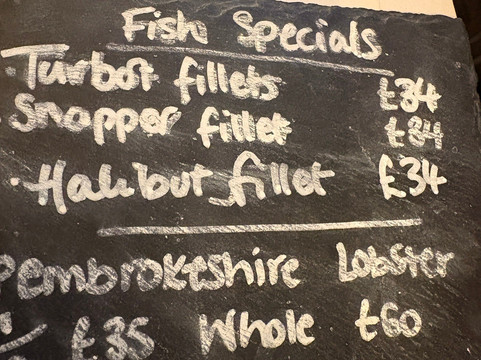 Fish Specials
· Turbot fillets £34
Snapper fillet £34
· Halibut fillet £34
Pembrokeshire Lobster
£35 Whole £60